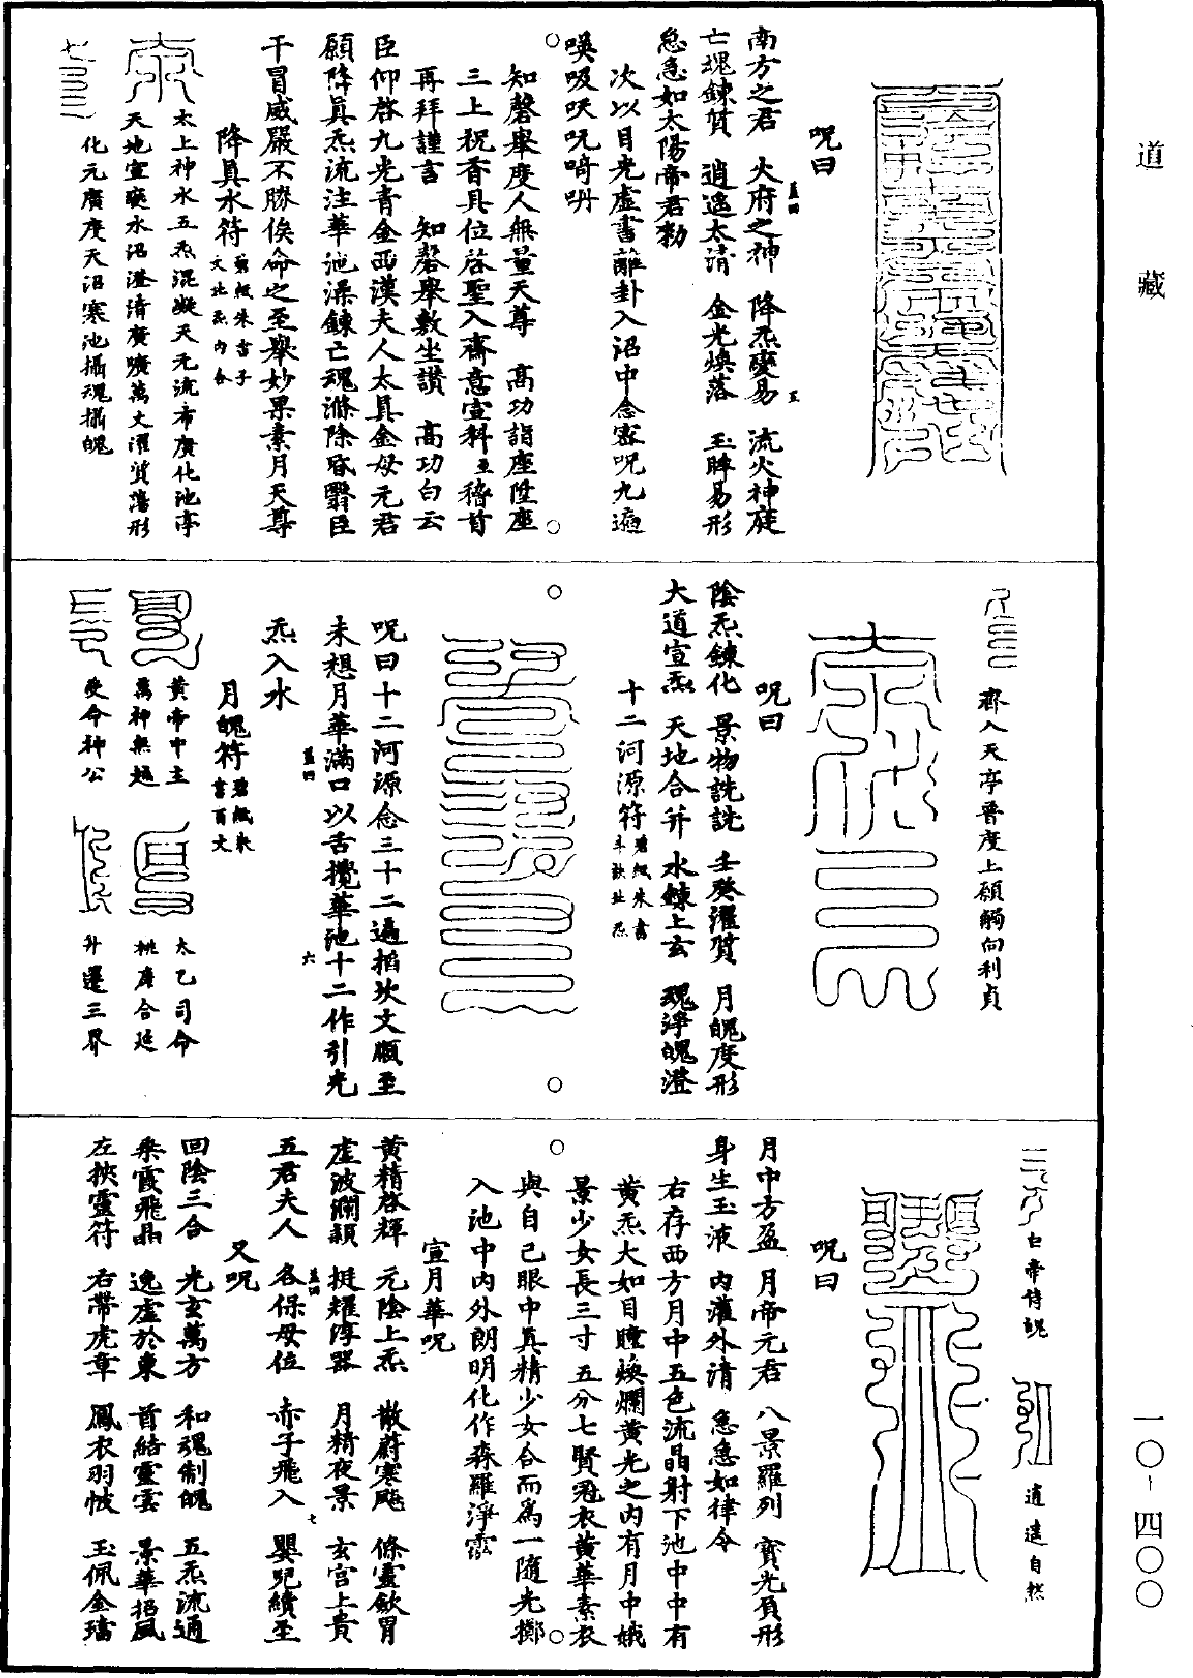 道藏
一〇-四〇〇
呪曰
南方之君　火府之神　降炁變易　流火神庭
亡魂鍊質　逍遥太清　金光煥落　玉眸易形
急急如太陽帝君勑
次以目光虛書離卦入沼中念密呪九遍
知磬舉度人無量天尊　高功詣座陞座
三上祝香具位啓聖入齋意宣科亟稽首
再拜謹言　知磬舉敷坐讚　高功白云
臣仰啓九光青金西漢夫人太真金母元君
願降真炁流注華池澡鍊亡魂滌除昏翳臣
干冒威嚴不勝俟命之至舉妙果素月天尊
降真水符
太上神水五炁混凝天元流布廣化池亭
天地宣奭水沼澄清廣曠萬丈濯質蕩形
化元廣度天沼寒池攝魂攝魄
齊入天亭普度上願觸向利貞
呪曰
陰炁鍊化　景物詵詵　壬癸濯質　月魄度形
大道宣炁　天地合并　水鍊上玄　魂淨魄澄
十二河源符
呪曰十二河源念三十二遍掐坎文順至
未想月華滿口以舌攪華池十二作引光
炁入水
月魄符
黃帝中主
萬神無越
受命神公
太乙司命
桃康合延
升遷三界
白帝侍魄
逍遥自然
呪曰
月中方盈　月帝元君　八景羅列　寶光頁形
身生玉液　内灌外清　急急如律令
右存西方月中五色流晶射下池中中有
黃炁大如目瞳煥爛黃光之内有月中娥
景少女長三寸五分七賢冠衣黃華素衣
與自己眼中真精少女合而爲一隨光擲
入池中内外朗明化作森羅淨雲
宣月華呪
黃精啓輝　元陰上炁　散蔚寒飈　條靈斂胃
虛波瀾顙　挺耀淳器　月精夜景　玄宮上貴
五君夫人　各保母位　赤子飛入　嬰兒續至
又呪
回陰三合　光玄萬方　和魂制魄　五炁流通
乘霞飛晶　逸虛於東　首結靈雲　景華招風
左挾靈符　右帶虎章　鳳衣羽帔　玉佩金璫